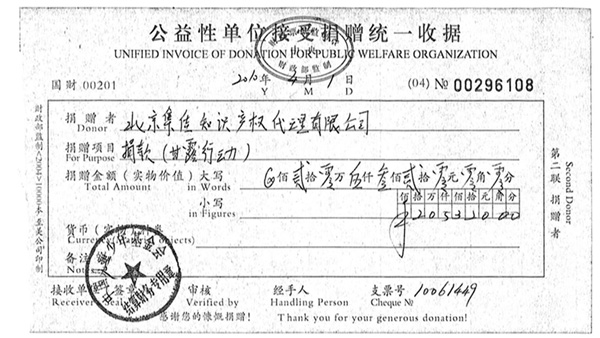 公益性单位接受捐赠统一收据
UNIFIED INVOICE OF DONATION FOR PUBLIC WELFARE ORGANIZATION
财政部监制
国财 00201
2010 年 4 月 1 日
Y M D
(04) № 00296108
捐赠者 北京集佳知识产权代理有限公司
Donor
捐赠项目 捐款(甘露行动)
For Purpose
捐赠金额(实物价值)大写 佰贰拾零万伍仟叁佰贰拾零元零角零分
Total Amount in Words
小写 佰拾万仟佰拾元角分
in Figures 2053200 0
货币(实物)
Currency objects)
备注
Note
接收单 审核 经手人 支票号 10061449
Receiver Seal Verified by Handling Person Cheque №
感谢您的慷慨捐赠! Thank you for your generous donation!
财政部监制 2004.3 本 印制
第二联 捐赠者
Second Donor